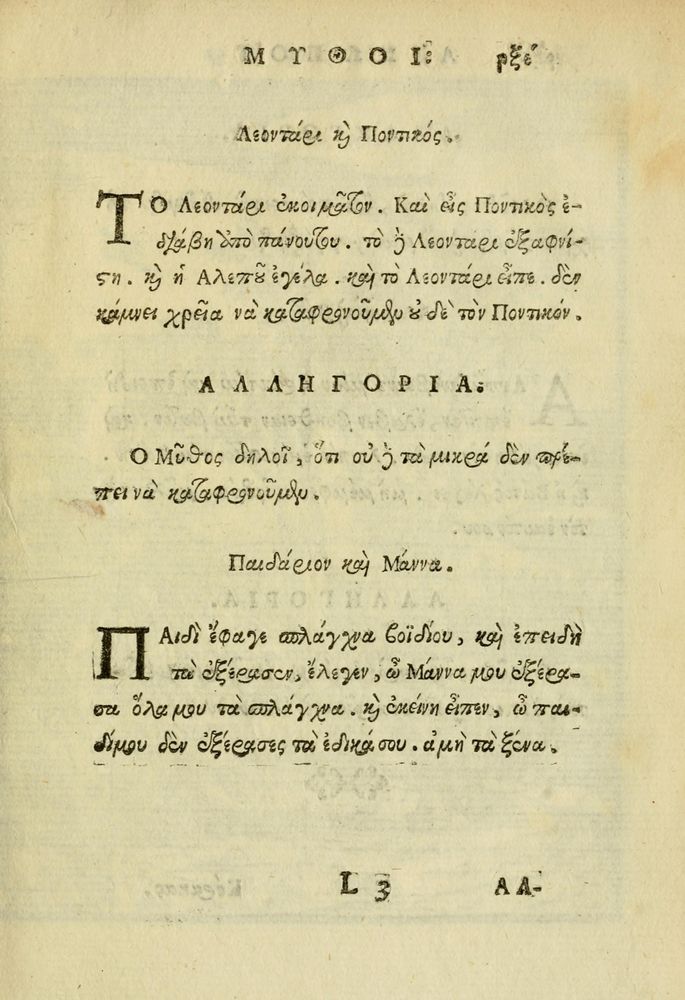 ΜΥΘΟΙ. ρξέ
Λεοντάρι κὶ Ποντικός.
ΤΟ Λεοντάρι ἐκοιμᾶτον. Καὶ εἷς Ποντικὸς ἐ-
διάβη ἀπὸ πάνουτου. τὸ ὃ Λεοντάρι ἐξαφνί-
στη. κὶ ἡ Αλεποῦ ἐγέλα. καὶ τὸ Λεοντάρι εἶπε. δὲν
κάμνει χρεία νὰ καταφρονοῦμεν οὐδὲ τὸν Ποντικόν.
ΑΛΛΗΓΟΡΙΑ.
Ο Μῦθος δηλοῖ, ὅτι οὐδὲ τὰ μικρά δὲν πρέ-
πει νὰ καταφρονοῦμεν.
Παιδάριον καὶ Μάννα.
ΠΑιδὶ ἔφαγε σπλάγχνα βοϊδίου, καὶ ἐπειδὴ
τὰ ἐξέρασεν, ἔλεγεν, ὦ Μάννα μου ἐξέρα-
σα ὅλα μου τὰ σπλάγχνα. κὶ ἐκείνη εἶπεν, ὦ παι-
δίμου δὲν ἐξέρασες τὰ ἐδικάσου. ἀμὴ τὰ ξένα.
L 3 ΑΛ-